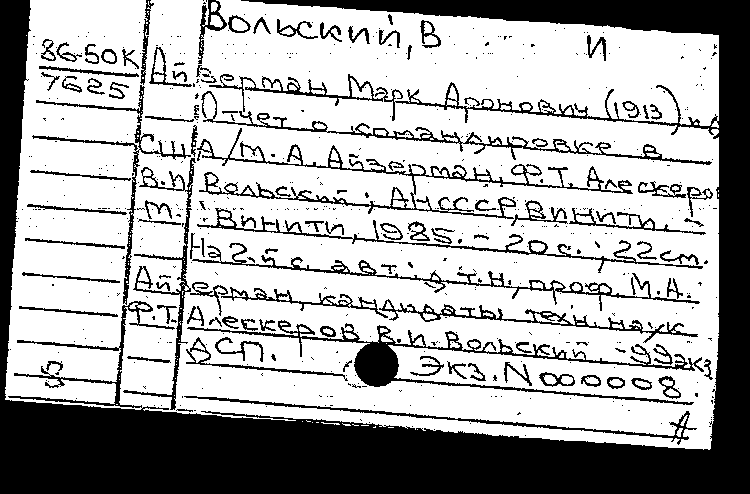 Вольский, В И
86-50К
7625
Айзерман, Марк Аронович (1913) и
Отчет о командировке в
США / М. А. Айзерман, Ф.Т. Алескеров
В.И Вольский ; АН СССР, ВИНИТИ. -
М. : ВИНИТИ, 1985. - 20 с. ; 22 см.
На 2-й с. авт.: д.т.н., проф. М.А.
Айзерман, кандидаты техн. наук
Ф.Т. Алескеров В.И. Вольский. - 99 экз
ДСП. Экз. N 000008.
А